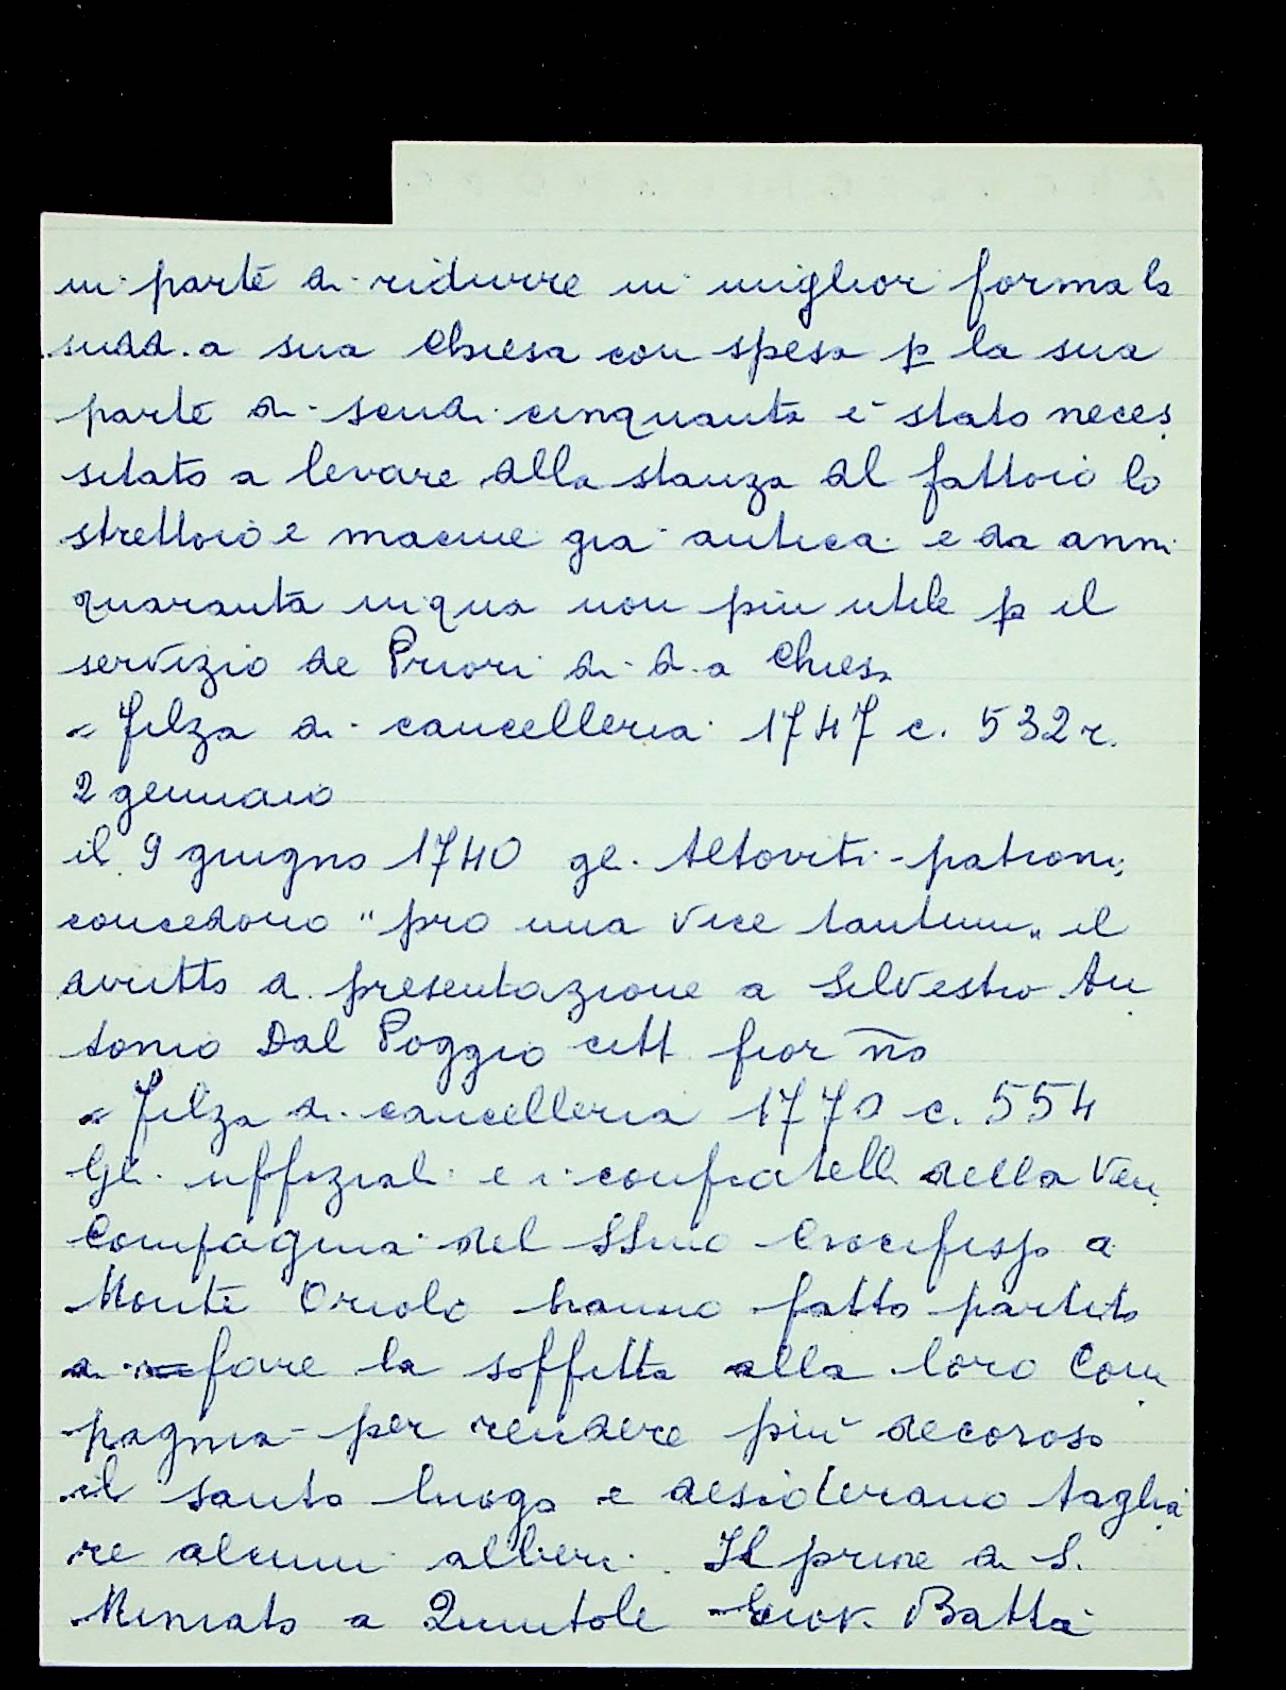 in parte di ridurre in miglior forma la
sudd.a sua Chiesa con spesa p la sua
parte di scudi cinquanta è stato neces
sitato a levare dalla stanza del fattoio lo
strettoio e macine già antica e da anni
quaranta in qua non più utile p il
servizio de Priori di d.a Chiesa
- Filza di cancelleria 1747 c. 532 r.
2 gennaio
il 9 giugno 1740 gli Altoviti patroni,
concedono "pro una vice tantum" il
diritto di presentazione a Silvestro An
tonio Dal Poggio citt. fior no
- Filza di cancelleria 1770 c. 554
Gli uffiziali e i confratelli della Ven.
Compagnia del SSmo Crocifisso a
Monte Oriolo hanno fatto partito
di fare la soffitta alla loro Com
pagnia per rendere più decoroso
il santo luogo e desiderano taglia
re alcuni alberi. Il priore di S.
Miniato a Quintole Giov. Batta